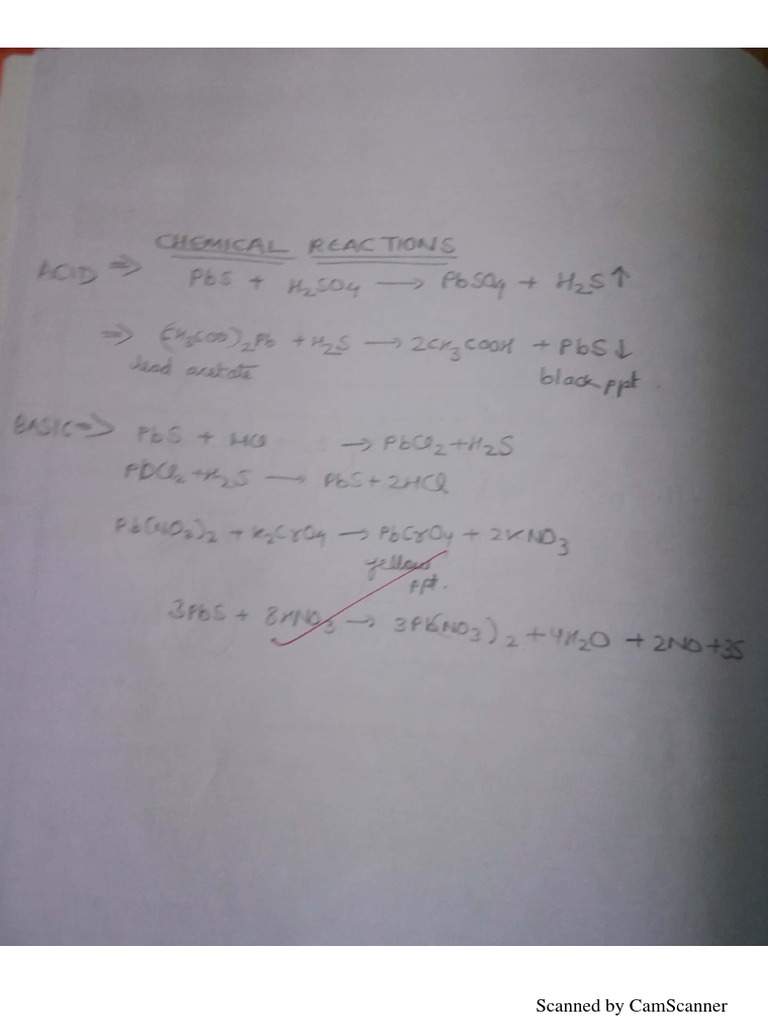 CHEMICAL REACTIONS
ACID ⇒ PbS + H₂SO₄ → PbSO₄ + H₂S↑
⇒ (CH₃COO)₂Pb + H₂S → 2CH₃COOH + PbS↓
lead acetate black ppt.
BASIC ⇒ PbS + HCl → PbCl₂ + H₂S
PbCl₂ + H₂S → PbS + 2HCl
Pb(NO₃)₂ + K₂CrO₄ → PbCrO₄ + 2KNO₃
yellow
ppt.
3PbS + 8HNO₃ → 3Pb(NO₃)₂ + 4H₂O + 2NO + 3S
Scanned by CamScanner